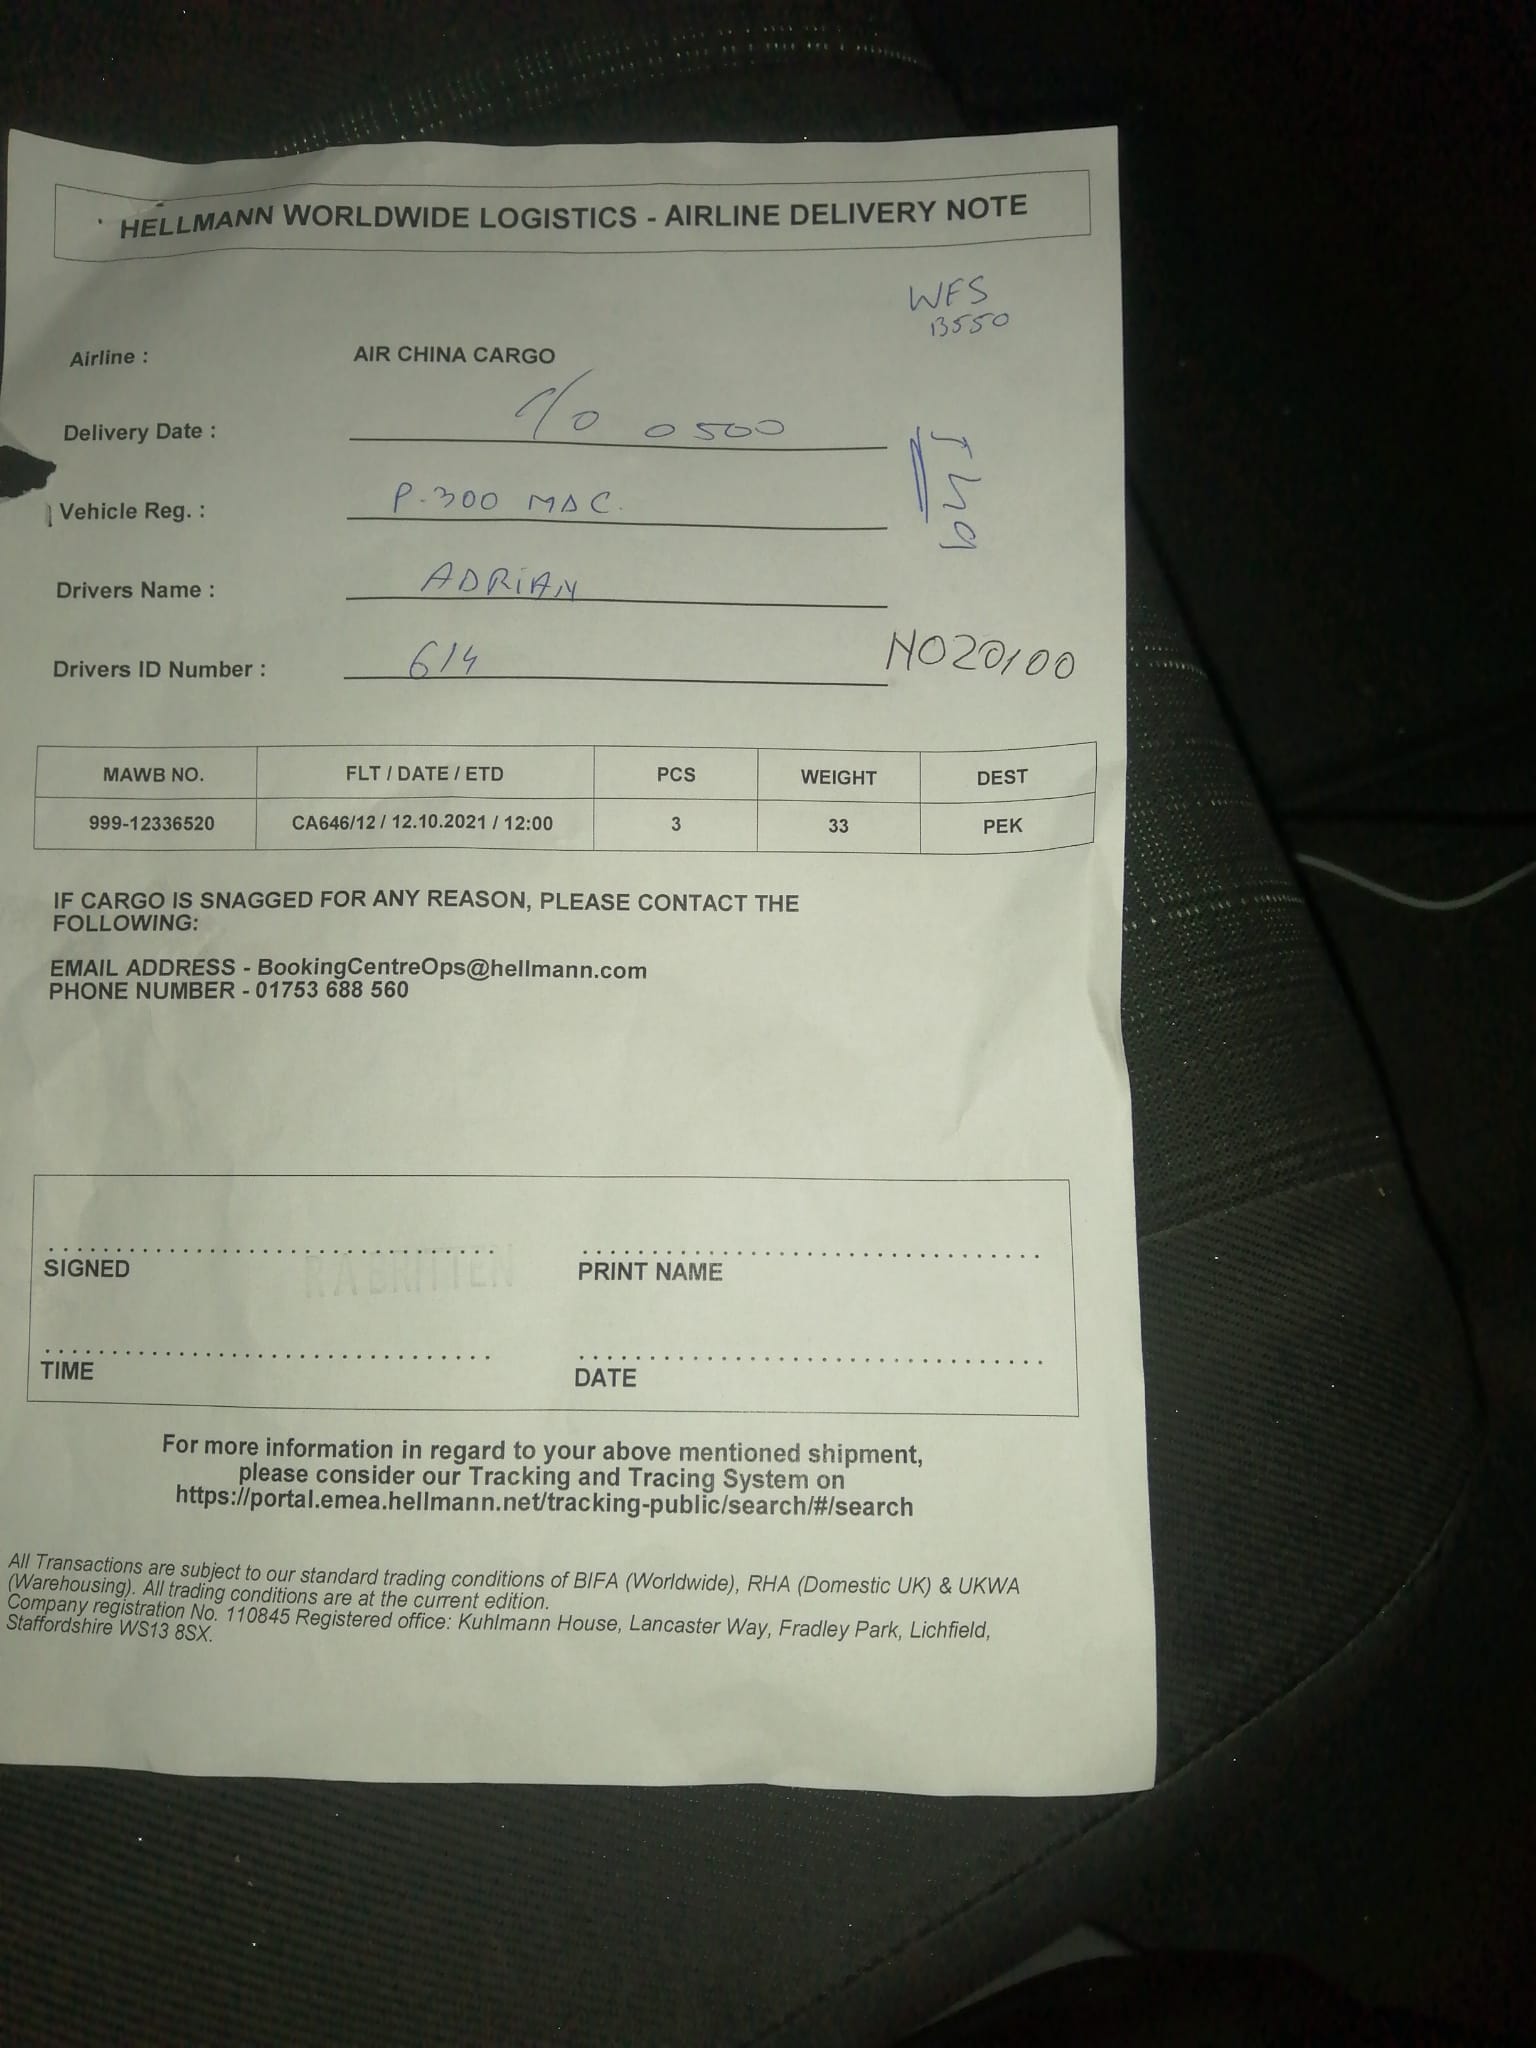 HELLMANN WORLDWIDE LOGISTICS - AIRLINE DELIVERY NOTE
WFS
B550
Airline : AIR CHINA CARGO
Delivery Date : 0500
Vehicle Reg. : P-300 MAC.
Drivers Name : ADRiAN
Drivers ID Number : 614
NO20100
MAWB NO. FLT / DATE / ETD PCS WEIGHT DEST
999-12336520 CA646/12 / 12.10.2021 / 12:00 3 33 PEK
IF CARGO IS SNAGGED FOR ANY REASON, PLEASE CONTACT THE
FOLLOWING:
EMAIL ADDRESS - BookingCentreOps@hellmann.com
PHONE NUMBER - 01753 688 560
R A BRITTEN
SIGNED PRINT NAME
TIME DATE
For more information in regard to your above mentioned shipment,
please consider our Tracking and Tracing System on
https://portal.emea.hellmann.net/tracking-public/search/#/search
All Transactions are subject to our standard trading conditions of BIFA (Worldwide), RHA (Domestic UK) & UKWA
(Warehousing). All trading conditions are at the current edition.
Company registration No. 110845 Registered office: Kuhlmann House, Lancaster Way, Fradley Park, Lichfield,
Staffordshire WS13 8SX.